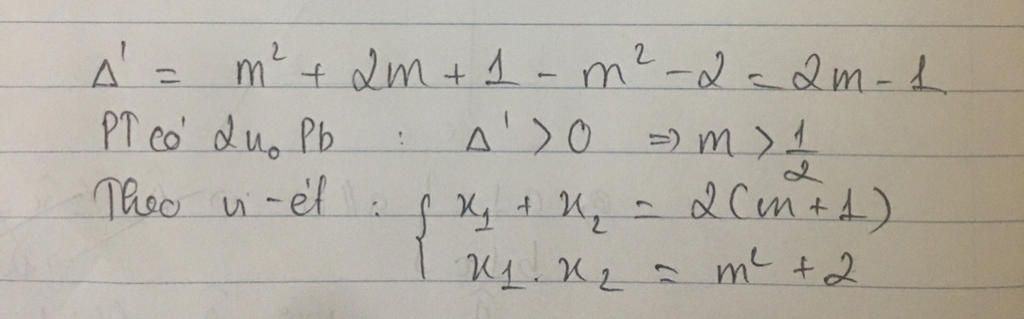 Δ' = m² + 2m + 1 - m² - 2 = 2m - 1
PT có 2n₀ Pb : Δ' > 0 => m > 1/2
Theo vi-ét : { x₁ + x₂ = 2(m+1)
x₁ . x₂ = m² + 2